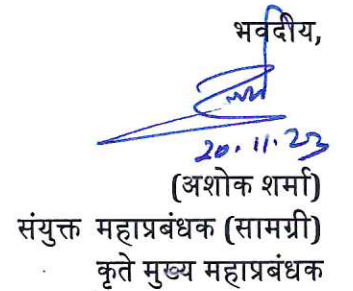 भवदीय,
20.11.23
(अशोक शर्मा)
संयुक्त महाप्रबंधक (सामग्री)
कृते मुख्य महाप्रबंधक